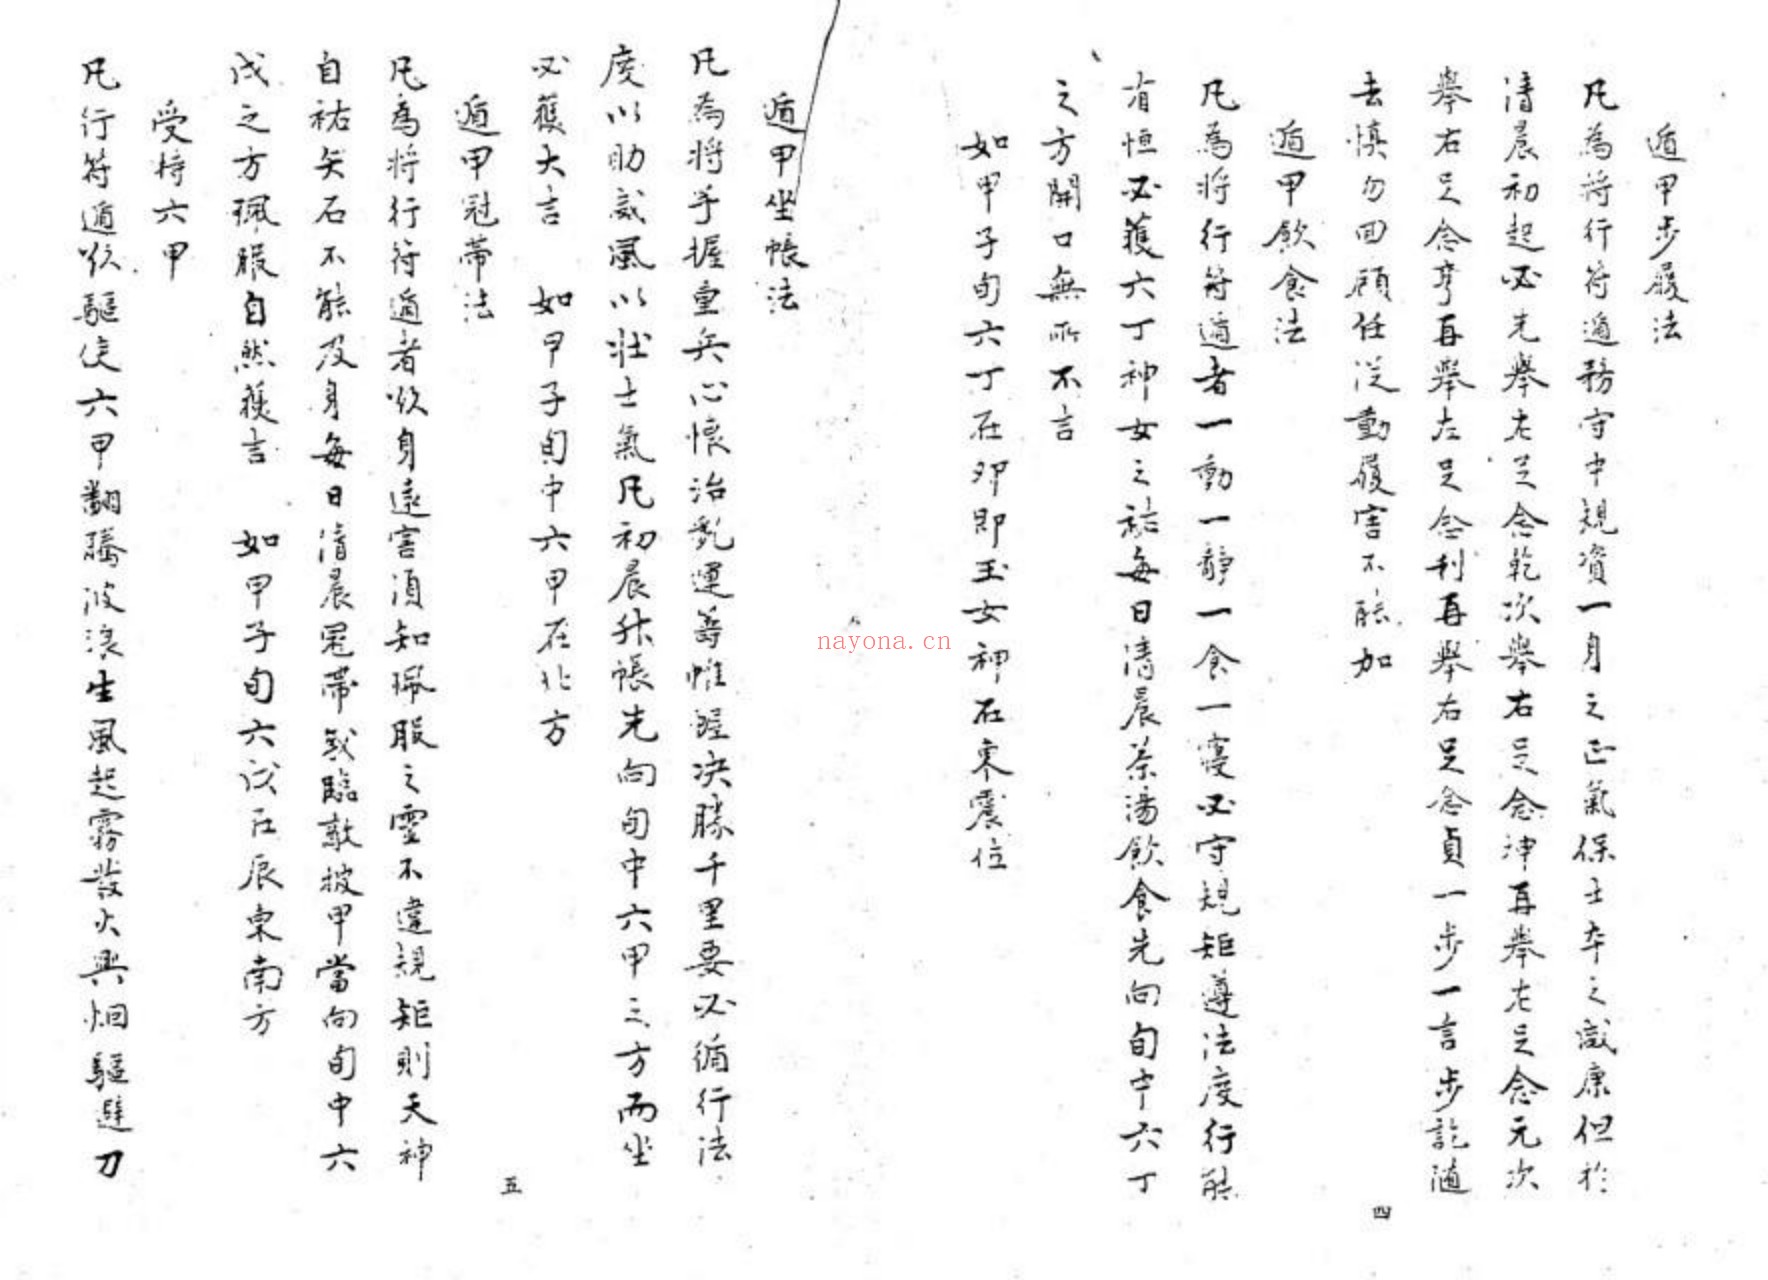 遁甲步履法
凡為將行符遁務守中規資一身之正氣保士卒之咸康但於
清晨初起必先舉左足念乾次舉右足念神再舉左足念元次
舉右足念亨再舉左足念利再舉右足念貞一步一言步訖隨
去慎勿回顧任從動履害不能加
遁甲飲食法
凡為將行符遁者一動一靜一食一寢必守規矩遵法度行能
有恒必獲六丁神女之祐每日清晨茶湯飲食先向旬中六丁
之方開口無所不言
如甲子旬六丁在卯即玉女神在東震位
四
遁甲坐帳法
凡為將手握重兵心懷治亂運籌帷幄決勝千里要必循行法
度以助威風以壯士氣凡初晨升帳先向旬中六甲之方而坐
必獲大吉 如甲子旬中六甲在北方
遁甲冠帶法
凡為將行符遁者欲身遠害須知珮服之靈不違規矩則天神
自祐矢石不能及身每日清晨冠帶或臨敵披甲當向旬中六
戊之方珮服自然獲吉 如甲子旬六戊在辰東南方
受持六甲
凡行符遁欲驅使六甲翻騰波浪生風起霧發火興烟驅避刀
五
nayona.cn